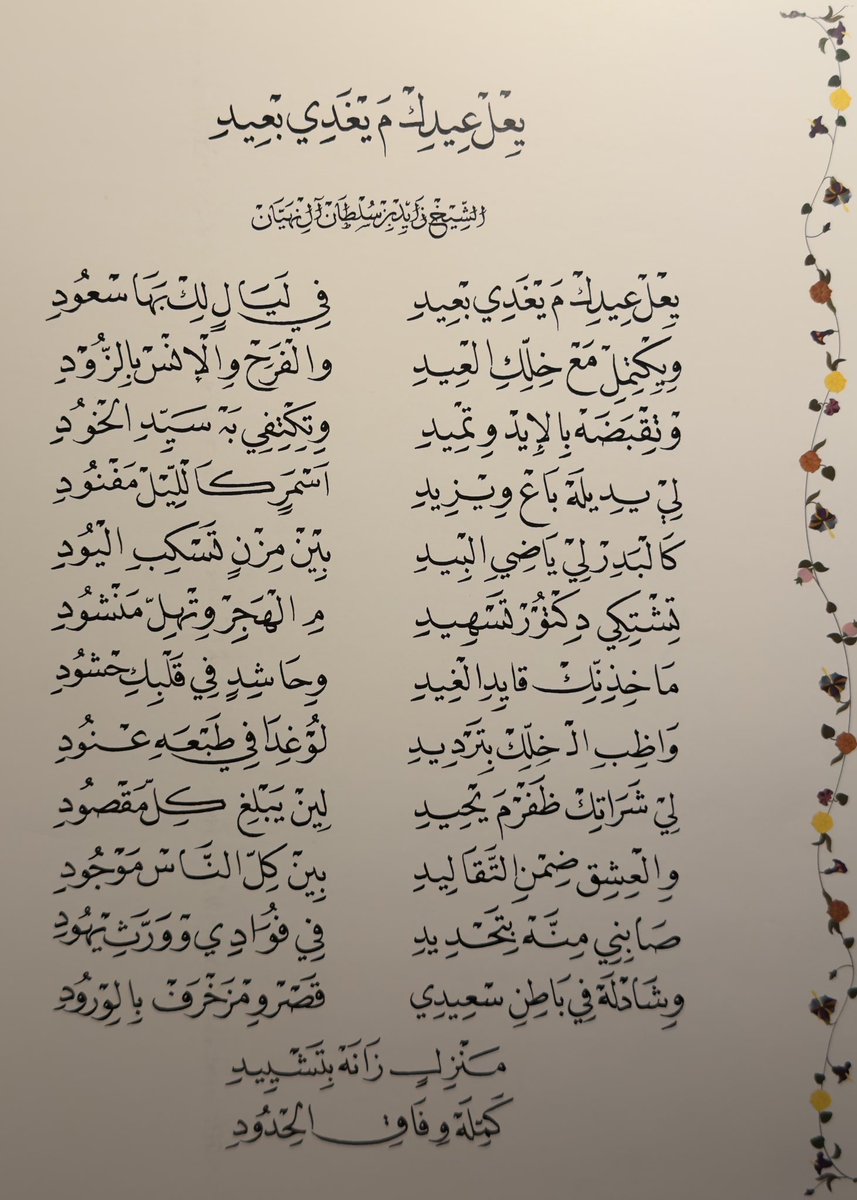 يِعْلْ عِيدِكْ مَ يَغَدِي بَعِيدِ
الشِّيخْ زَايِدْ بِنْ سُلْطَانْ آلْ نَهْيَّانْ
يِعْلْ عِيدِكْ مَ يَغَدِي بَعِيدِ فِي لَيَالٍ لِكْ بَهَا سْعُودِ
وِيِكْتِمِلْ مَعْ خِلِّكِ الْعِيدِ والْفَرَحْ وِالْإنْسْ بِالزُّوْدِ
وْتِقْبَضَهْ بِالإِيدْ وِتْمِيدِ وِتِكْتِفِي بَهْ سَيِّدِ الْخُودِ
لِيْ يِدِيلَهْ بَاعْ وِيْزِيدِ اَسْمَرٍ كَالْلِيّلْ مَفْنُودِ
كَالْبَدِرْ لِيْ يَاضِيِ الْبِيدِ بِيْنْ مِزْنٍ تَسْكِبِ الْيُودِ
تِشْتِكِي دِكْتُوْرْ تَسْهِيدِ مِ الْهَجِرْ وِتْهِلّ مَنْشُودِ
مَاخِذِنّكْ قايِدِ الْغِيدِ وِحَاشِدٍ فِي قَلْبِكِ حْشُودِ
وَاظِبِ الْـ خِلِّكْ بِتَرْدِيدِ لَوْ غِدَا فِي طَبْعَهِ عْنُودِ
لِيْ شَرَاتِكْ ظَفْرْ مَ يْحِيدِ لِينْ يَبْلِغْ كِلّ مَقْصُودِ
وِالْعِشِقْ ضِمْنِ التَّقَالِيدِ بِينْ كِلّ النَّاسْ مَوْجُودِ
صَابِنِي مِنَّهْ بِتَحْدِيدِ فِي فُوَادِي وْوَرَّثِ يْهُودِ
وِشَادْلَهْ فِي بَاطِنِ سْعِيدِي قَصْرْ وِمْزَخْرَفْ بِالِوْرُودِ
مَنْزِلٍ زَانَهْ بِتَشْيِيدِ
كَمِّلَهْ وِفَاقِ الِحْدُودِ